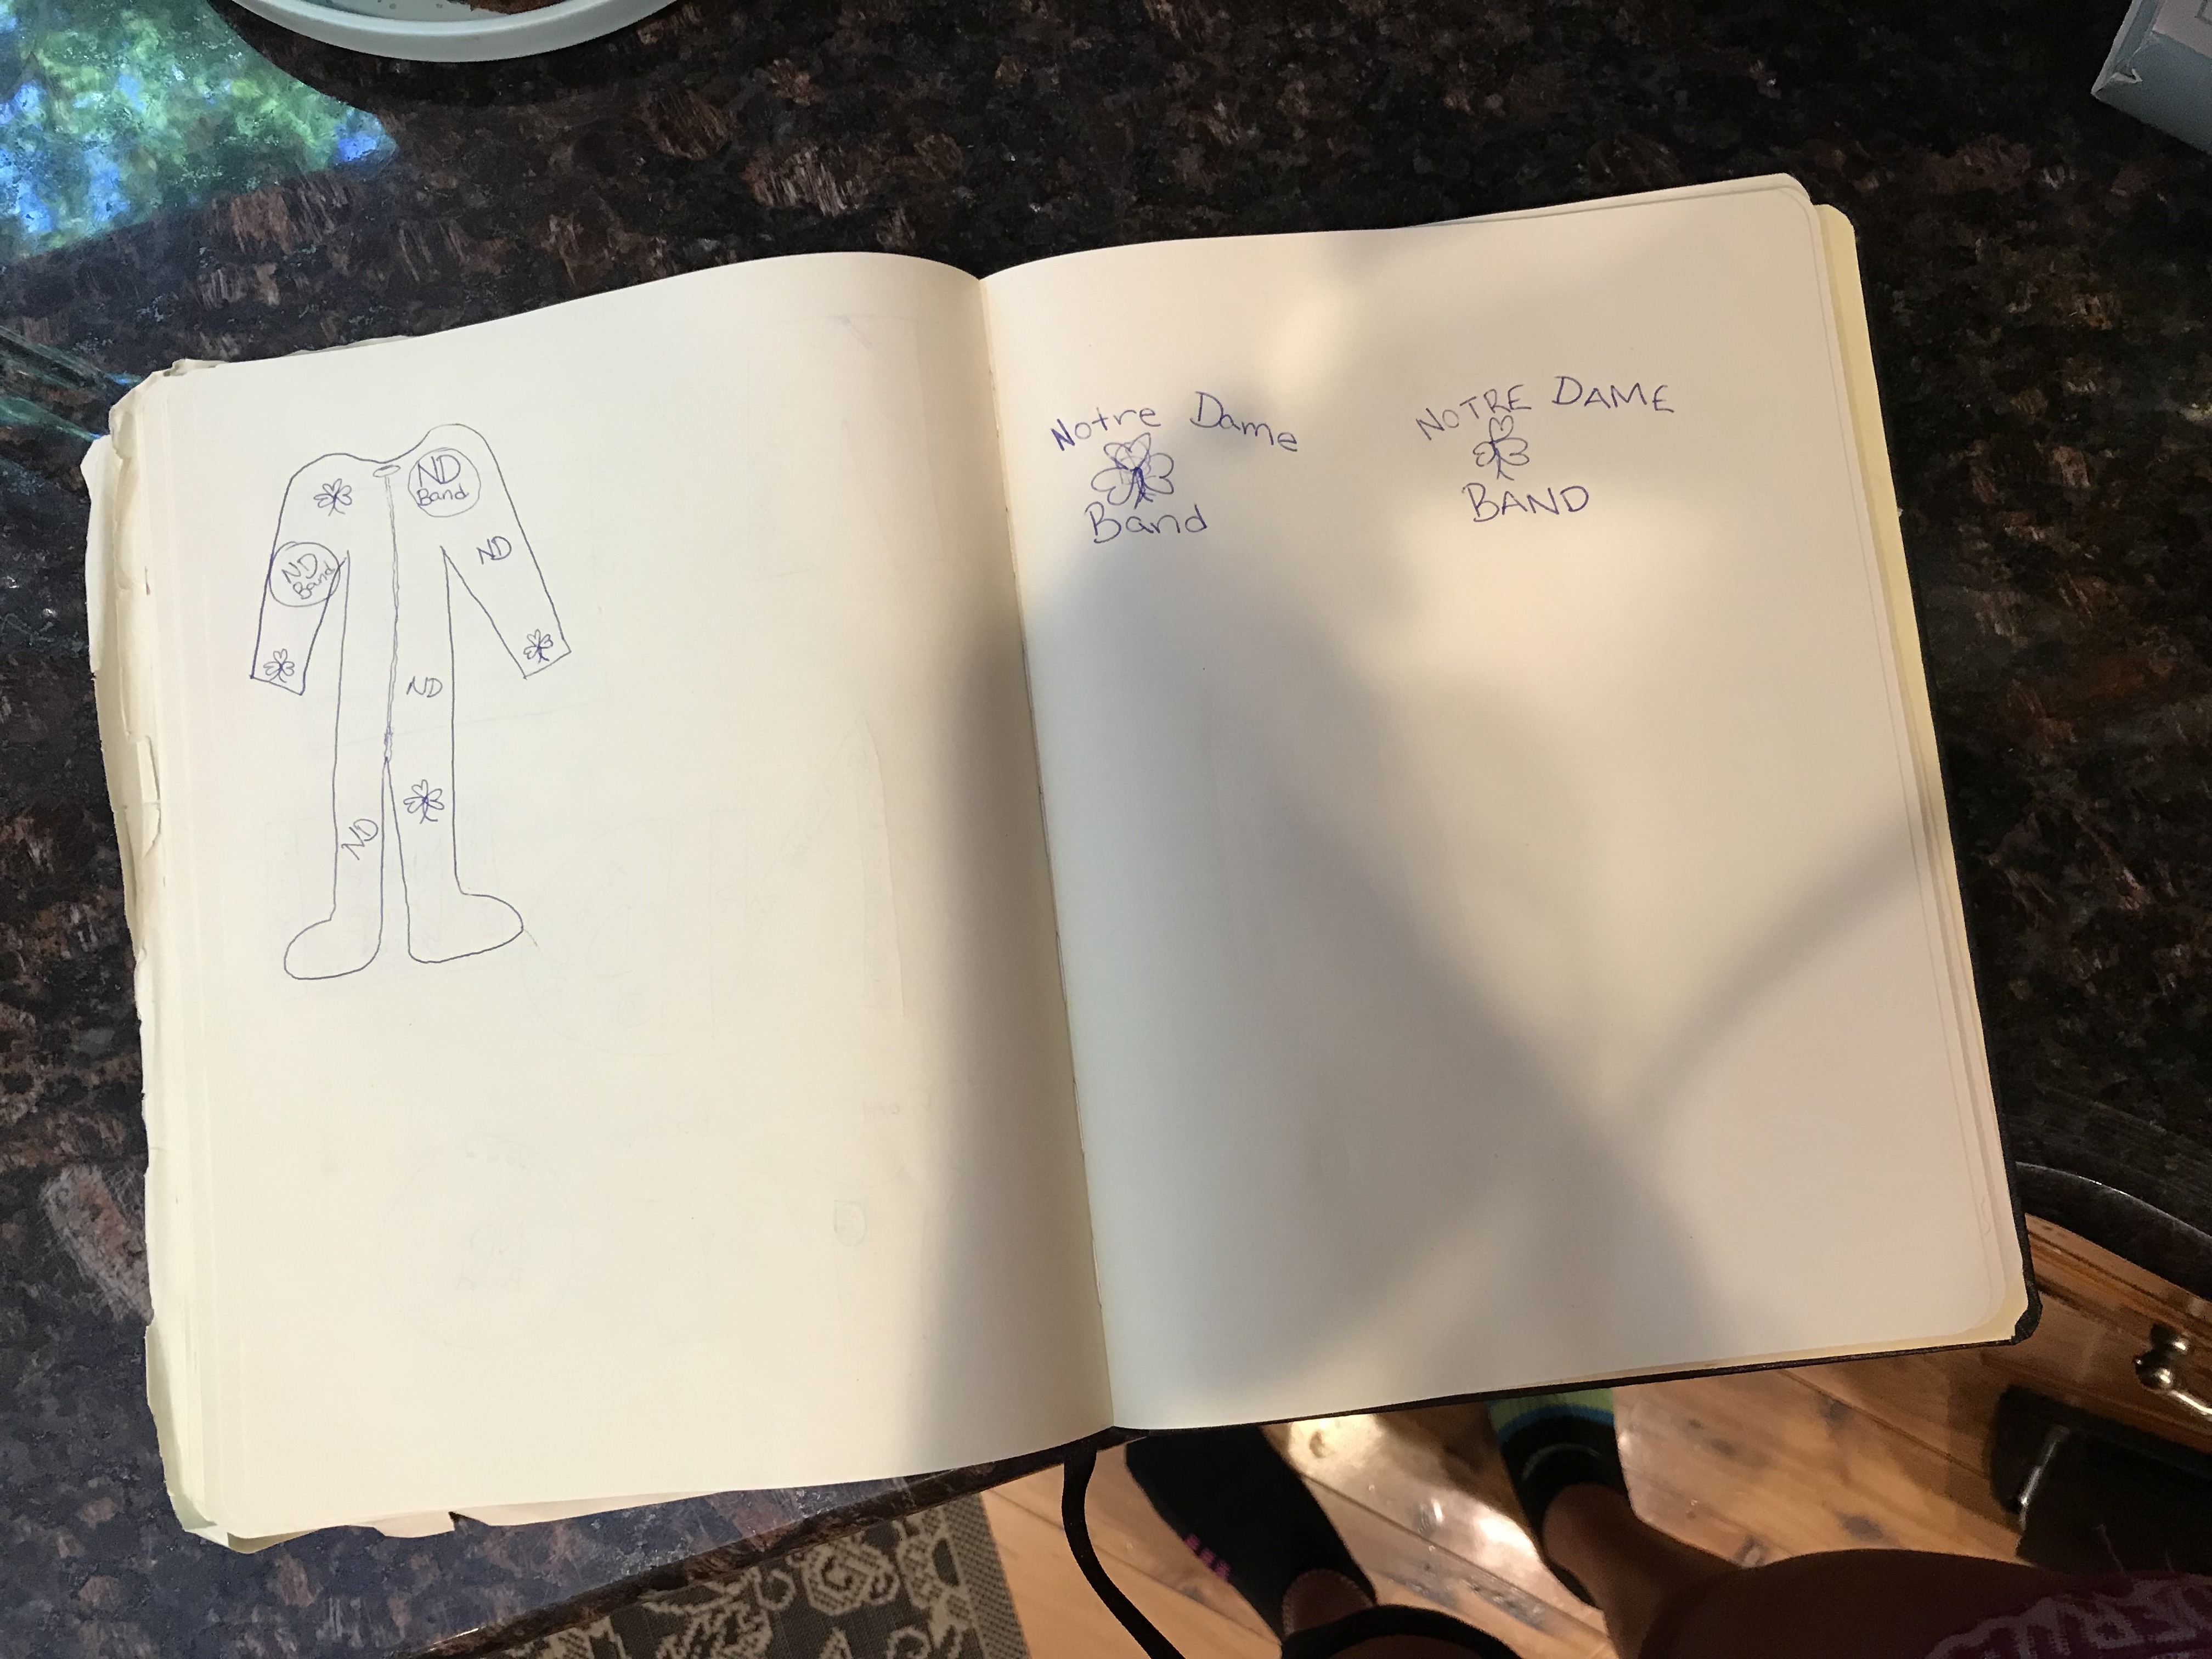 ND
Band
ND
Band
ND
ND
ND
Notre Dame
Band
NOTRE DAME
BAND